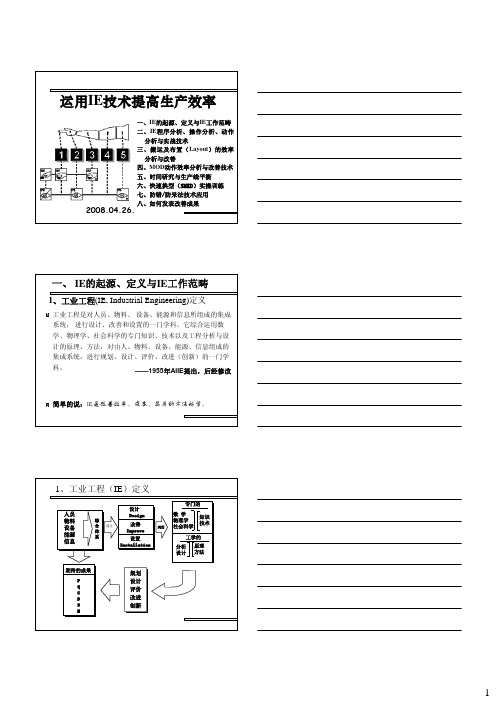 运用IE技术提高生产效率
一、IE的起源、定义与IE工作范畴
二、IE程序分析、操作分析、动作
分析与实战技术
三、搬运及布置（Layout）的效率
分析与改善
四、MOD动作效率分析与改善技术
五、时间研究与生产线平衡
六、快速换型（SMED）实操训练
七、防错/防呆法技术应用
八、如何发表改善成果
1 2 3 4 5
2008.04.26.
一、 IE的起源、定义与IE工作范畴
1、工业工程(IE, Industrial Engineering)定义
工业工程是对人员、物料、设备、能源和信息所组成的集成
系统，进行设计、改善和设置的一门学科。它综合运用数
学、物理学、社会科学的专门知识、技术以及工程分析与设
计的原理、方法，对由人、物料、设备、能源、信息组成的
集成系统，进行规划、设计、评价、改进（创新）的一门学
科。
——1955年AIIE提出，后经修改
简单的说：IE是改善效率、成本、品质的方法科学。
1、工业工程（IE）定义
人员
物料
设备
能源
信息
设计
Design
改善
Improve
设置
Installation
专门的
数 学
物理学
社会科学
知识
技术
工学的
分析
设计
原理
方法
规划
设计
评价
改进
创新
期待的成果
P
Q
C
D
S
M
1